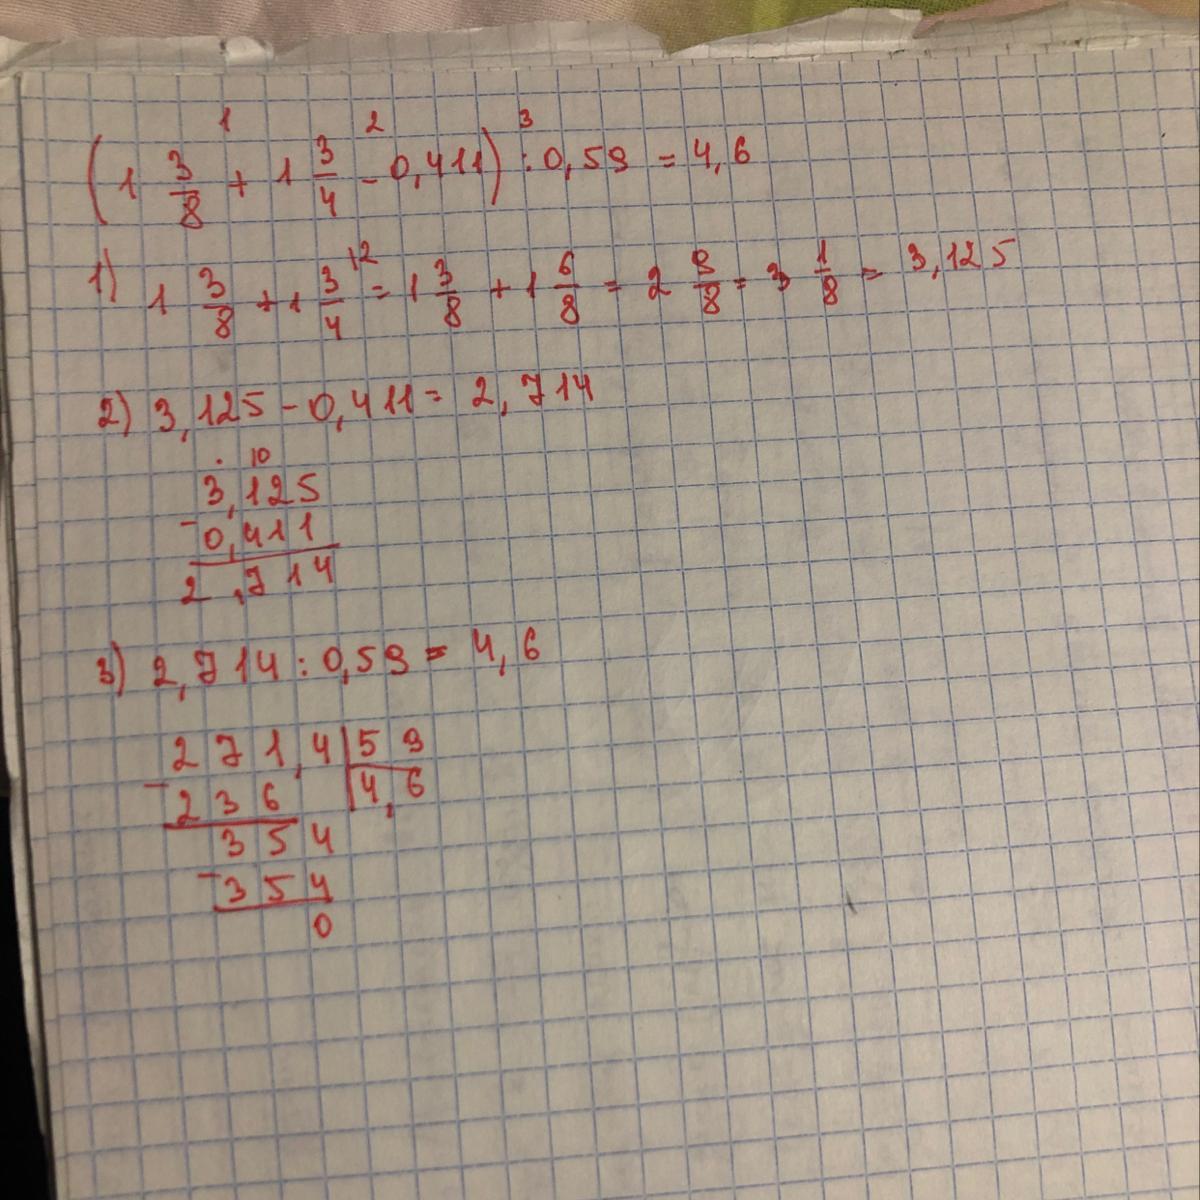 (1 3/8 + 1 3/4 - 0,411) : 0,59 = 4,6
1) 1 3/8 + 1 3/4 = 1 3/8 + 1 6/8 = 2 9/8 = 3 1/8 = 3,125
2) 3,125 - 0,411 = 2,714
10
3,125
- 0,411
2,714
3) 2,714 : 0,59 = 4,6
271,4 | 59
- 236 | 4,6
354
- 354
0